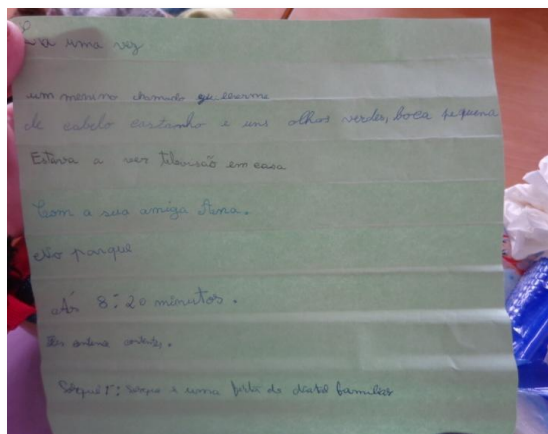 Era uma vez
um menino chamado guilherme
de cabelo castanho e uns olhos verdes, boca pequena
Estava a ver televisão em casa
Com a sua amiga Rena.
No parque
Às 8:20 minutos.
ontem
Porquê?: Porque é uma festa do